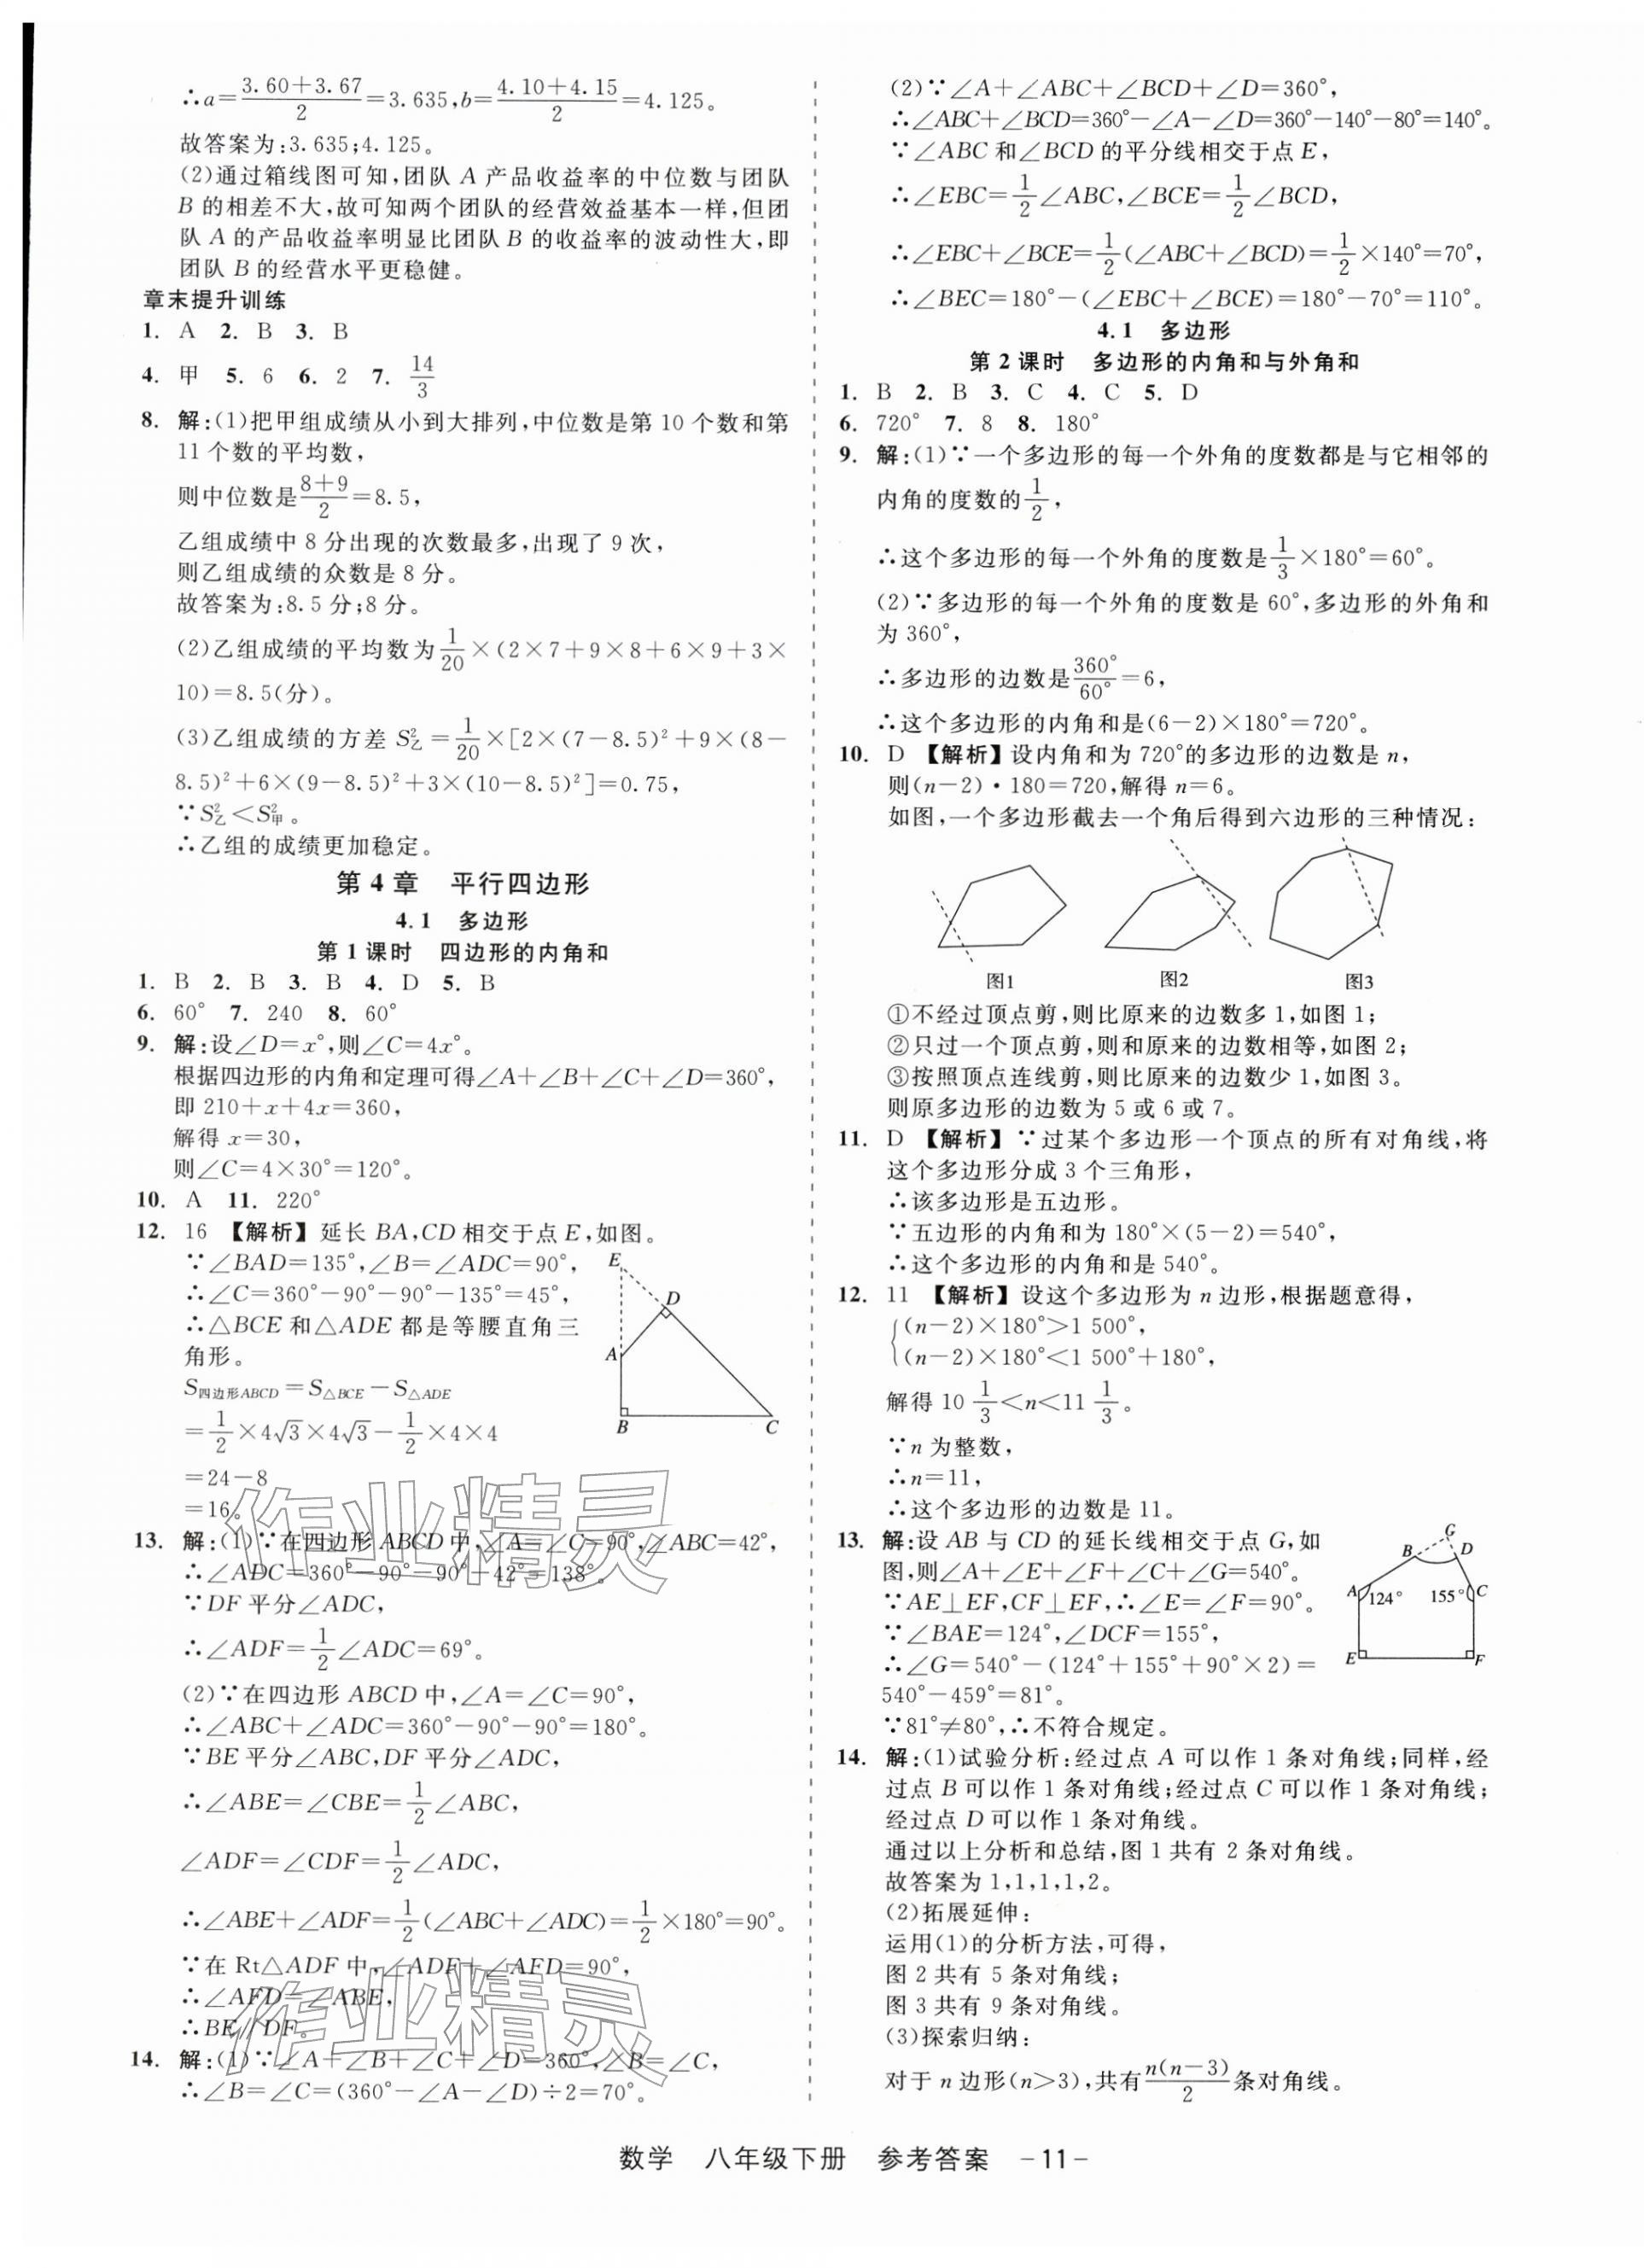 ∴a=(3.60+3.67)/2=3.635,b=(4.10+4.15)/2=4.125。
故答案为:3.635;4.125。
(2)通过箱线图可知,团队 A 产品收益率的中位数与团队
B 的相差不大,故可知两个团队的经营效益基本一样,但团
队 A 的产品收益率明显比团队 B 的收益率的波动性大,即
团队 B 的经营水平更稳健。
章末提升训练
1. A 2. B 3. B
4. 甲 5. 6 6. 2 7. 14/3
8. 解:(1)把甲组成绩从小到大排列,中位数是第 10 个数和第
11 个数的平均数,
则中位数是(8+9)/2=8.5,
乙组成绩中 8 分出现的次数最多,出现了 9 次,
则乙组成绩的众数是 8 分。
故答案为:8.5 分;8 分。
(2)乙组成绩的平均数为1/20×(2×7+9×8+6×9+3×
10)=8.5(分)。
(3)乙组成绩的方差 S²乙=1/20×[2×(7-8.5)²+9×(8-
8.5)²+6×(9-8.5)²+3×(10-8.5)²]=0.75,
∵S²乙<S²甲。
∴乙组的成绩更加稳定。
第 4 章 平行四边形
4.1 多边形
第 1 课时 四边形的内角和
1. B 2. B 3. B 4. D 5. B
6. 60° 7. 240 8. 60°
9. 解:设∠D=x°,则∠C=4x°。
根据四边形的内角和定理可得∠A+∠B+∠C+∠D=360°,
即 210+x+4x=360,
解得 x=30,
则∠C=4×30°=120°。
10. A 11. 220°
12. 16 【解析】延长 BA,CD 相交于点 E,如图。
∵∠BAD=135°,∠B=∠ADC=90°,
∴∠C=360°-90°-90°-135°=45°,
∴△BCE 和△ADE 都是等腰直角三
角形。
S四边形ABCD=S△BCE-S△ADE
=1/2×4√3×4√3-1/2×4×4
=24-8
=16。
E
D
A
B
C
13. 解:(1)∵在四边形 ABCD 中,∠A=∠C=90°,∠ABC=42°,
∴∠ADC=360°-90°-90°+42°=138°。
∵DF 平分∠ADC,
∴∠ADF=1/2∠ADC=69°。
(2)∵在四边形 ABCD 中,∠A=∠C=90°,
∴∠ABC+∠ADC=360°-90°-90°=180°。
∵BE 平分∠ABC,DF 平分∠ADC,
∴∠ABE=∠CBE=1/2∠ABC,
∠ADF=∠CDF=1/2∠ADC,
∴∠ABE+∠ADF=1/2(∠ABC+∠ADC)=1/2×180°=90°。
∵在 Rt△ADF 中,∠ADF+∠AFD=90°,
∴∠AFD=∠ABE,
∴BE∥DF。
14. 解:(1)∵∠A+∠B+∠C+∠D=360°,∠B=∠C,
∴∠B=∠C=(360°-∠A-∠D)÷2=70°。
作业精灵
作业精灵
(2)∵∠A+∠ABC+∠BCD+∠D=360°,
∴∠ABC+∠BCD=360°-∠A-∠D=360°-140°-80°=140°。
∵∠ABC 和∠BCD 的平分线相交于点 E,
∴∠EBC=1/2∠ABC,∠BCE=1/2∠BCD,
∴∠EBC+∠BCE=1/2(∠ABC+∠BCD)=1/2×140°=70°,
∴∠BEC=180°-(∠EBC+∠BCE)=180°-70°=110°。
4.1 多边形
第 2 课时 多边形的内角和与外角和
1. B 2. B 3. C 4. C 5. D
6. 720° 7. 8 8. 180°
9. 解:(1)∵一个多边形的每一个外角的度数都是与它相邻的
内角的度数的1/2,
∴这个多边形的每一个外角的度数是1/3×180°=60°。
(2)∵多边形的每一个外角的度数是 60°,多边形的外角和
为 360°,
∴多边形的边数是360°/60°=6,
∴这个多边形的内角和是(6-2)×180°=720°。
10. D 【解析】设内角和为 720°的多边形的边数是 n,
则(n-2)·180=720,解得 n=6。
如图,一个多边形截去一个角后得到六边形的三种情况:
图1 图2 图3
①不经过顶点剪,则比原来的边数多 1,如图 1;
②只过一个顶点剪,则和原来的边数相等,如图 2;
③按照顶点连线剪,则比原来的边数少 1,如图 3。
则原多边形的边数为 5 或 6 或 7。
11. D 【解析】∵过某个多边形一个顶点的所有对角线,将
这个多边形分成 3 个三角形,
∴该多边形是五边形。
∵五边形的内角和为 180°×(5-2)=540°,
∴这个多边形的内角和是 540°。
12. 11 【解析】设这个多边形为 n 边形,根据题意得,
{(n-2)×180°>1 500°,
(n-2)×180°<1 500°+180°,
解得 10 1/3<n<11 1/3。
∵n 为整数,
∴n=11,
∴这个多边形的边数是 11。
13. 解:设 AB 与 CD 的延长线相交于点 G,如
图,则∠A+∠E+∠F+∠C+∠G=540°。
∵AE⊥EF,CF⊥EF,∴∠E=∠F=90°。
∵∠BAE=124°,∠DCF=155°,
∴∠G=540°-(124°+155°+90°×2)=
540°-459°=81°。
∵81°≠80°,∴不符合规定。
G
B D
A 124° 155° C
E F
14. 解:(1)试验分析:经过点 A 可以作 1 条对角线;同样,经
过点 B 可以作 1 条对角线;经过点 C 可以作 1 条对角线;
经过点 D 可以作 1 条对角线。
通过以上分析和总结,图 1 共有 2 条对角线。
故答案为 1,1,1,1,2。
(2)拓展延伸:
运用(1)的分析方法,可得,
图 2 共有 5 条对角线;
图 3 共有 9 条对角线。
(3)探索归纳:
对于 n 边形(n>3),共有n(n-3)/2条对角线。
数学 八年级下册 参考答案 -11-